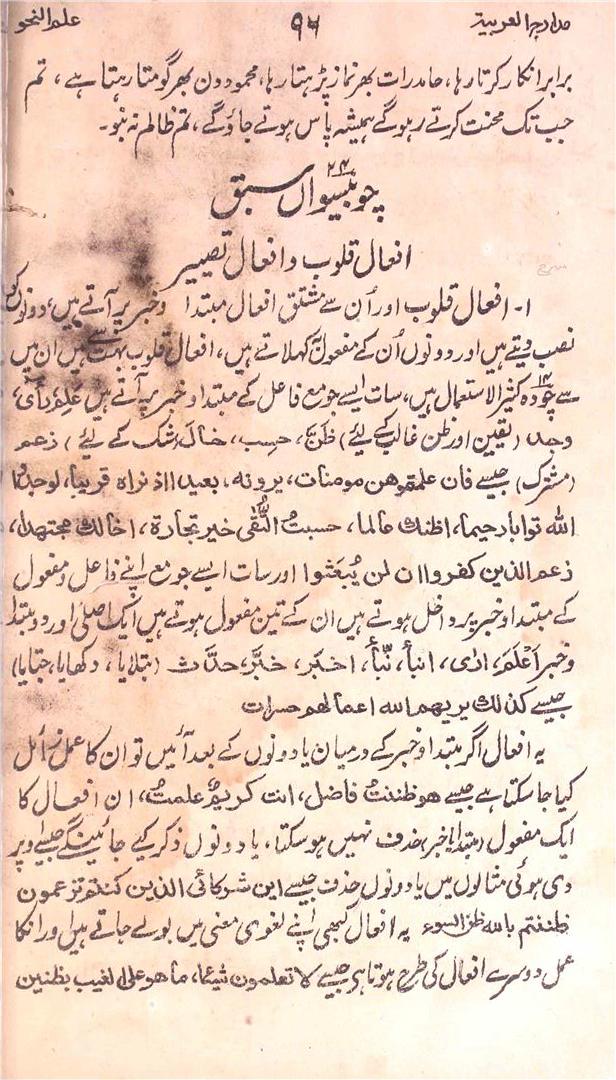 مدارج العربیۃ ۹۶ علم النحو
برابر انکار کرتا رہا، حامد رات بھر نماز پڑھتا رہا، محمود دن بھر گومتا رہتا ہے، تم
جب تک محنت کرتے رہوگے ہمیشہ پاس ہوتے جاؤگے، تم ظالم نہ بنو۔
چوبیسواں ۲۴ سبق
افعال قلوب و افعال تصییر
۱۔ افعال قلوب اور اُن سے مشتق افعال مبتدا و خبر پر آتے ہیں، دونوں کو
نصب دیتے ہیں اور دونوں اُن کے مفعول بہ کہلاتے ہیں، افعال قلوب بہت سے ہیں ان میں
سے چودہ ۱۴ کثیر الاستعمال ہیں، سات ایسے جو مع فاعل کے مبتدا و خبر پر آتے ہیں عَلِمَ، رأی،
وجد، (یقین اور ظن غالب کے لیے) ظَنَّ، حسِب، خال، (شک کے لیے) زعم
(مشترک) جیسے فان علمتموھن مومنات، یرونہ، بعیدا اذ نراہ قریبا، لوجدوا
اللہ توابا رحیما، اظنك عالما، حسبتُ التُّقی خیر تجارۃ، اخالك مجتھدا،
زعم الذین کفروا ان لن یُبعَثوا اور سات ایسے جو مع اپنے فاعل و مفعول
کے مبتدا و خبر پر داخل ہوتے ہیں ان کے تین مفعول ہوتے ہیں ایک اصلی اور دو مبتدا
و خبر أَعْلَمَ، اَرٰی، انبأ، نبّأ، اخبَر، خبَّر، حدّاث (بتلایا، دکھایا، جتایا)
جیسے کذلك یریھم اللہ اعمالھم حسرات
یہ افعال اگر مبتدا و خبر کے درمیان یا دونوں کے بعد آئیں تو ان کا عمل زائل
کیا جا سکتا ہے جیسے ھو ظننتُ فاضل، انت کریمٌ علمتُ، ان افعال کا
ایک مفعول (مبتدا یا خبر) حذف نہیں ہو سکتا، یا دونوں ذکر کیے جائینگے جیسے اوپر
دی ہوئی مثالوں میں یا دونوں حذف جیسے این شرکائی الذین کنتم تزعمون
ظننتم باللہ ظن السوء یہ افعال کبھی اپنے لغوی معنی میں بولے جاتے ہیں اور انکا
عمل دوسرے افعال کی طرح ہوتا ہی جیسے لا تعلمون شیئا، ما ھو علی الغیب بظنین